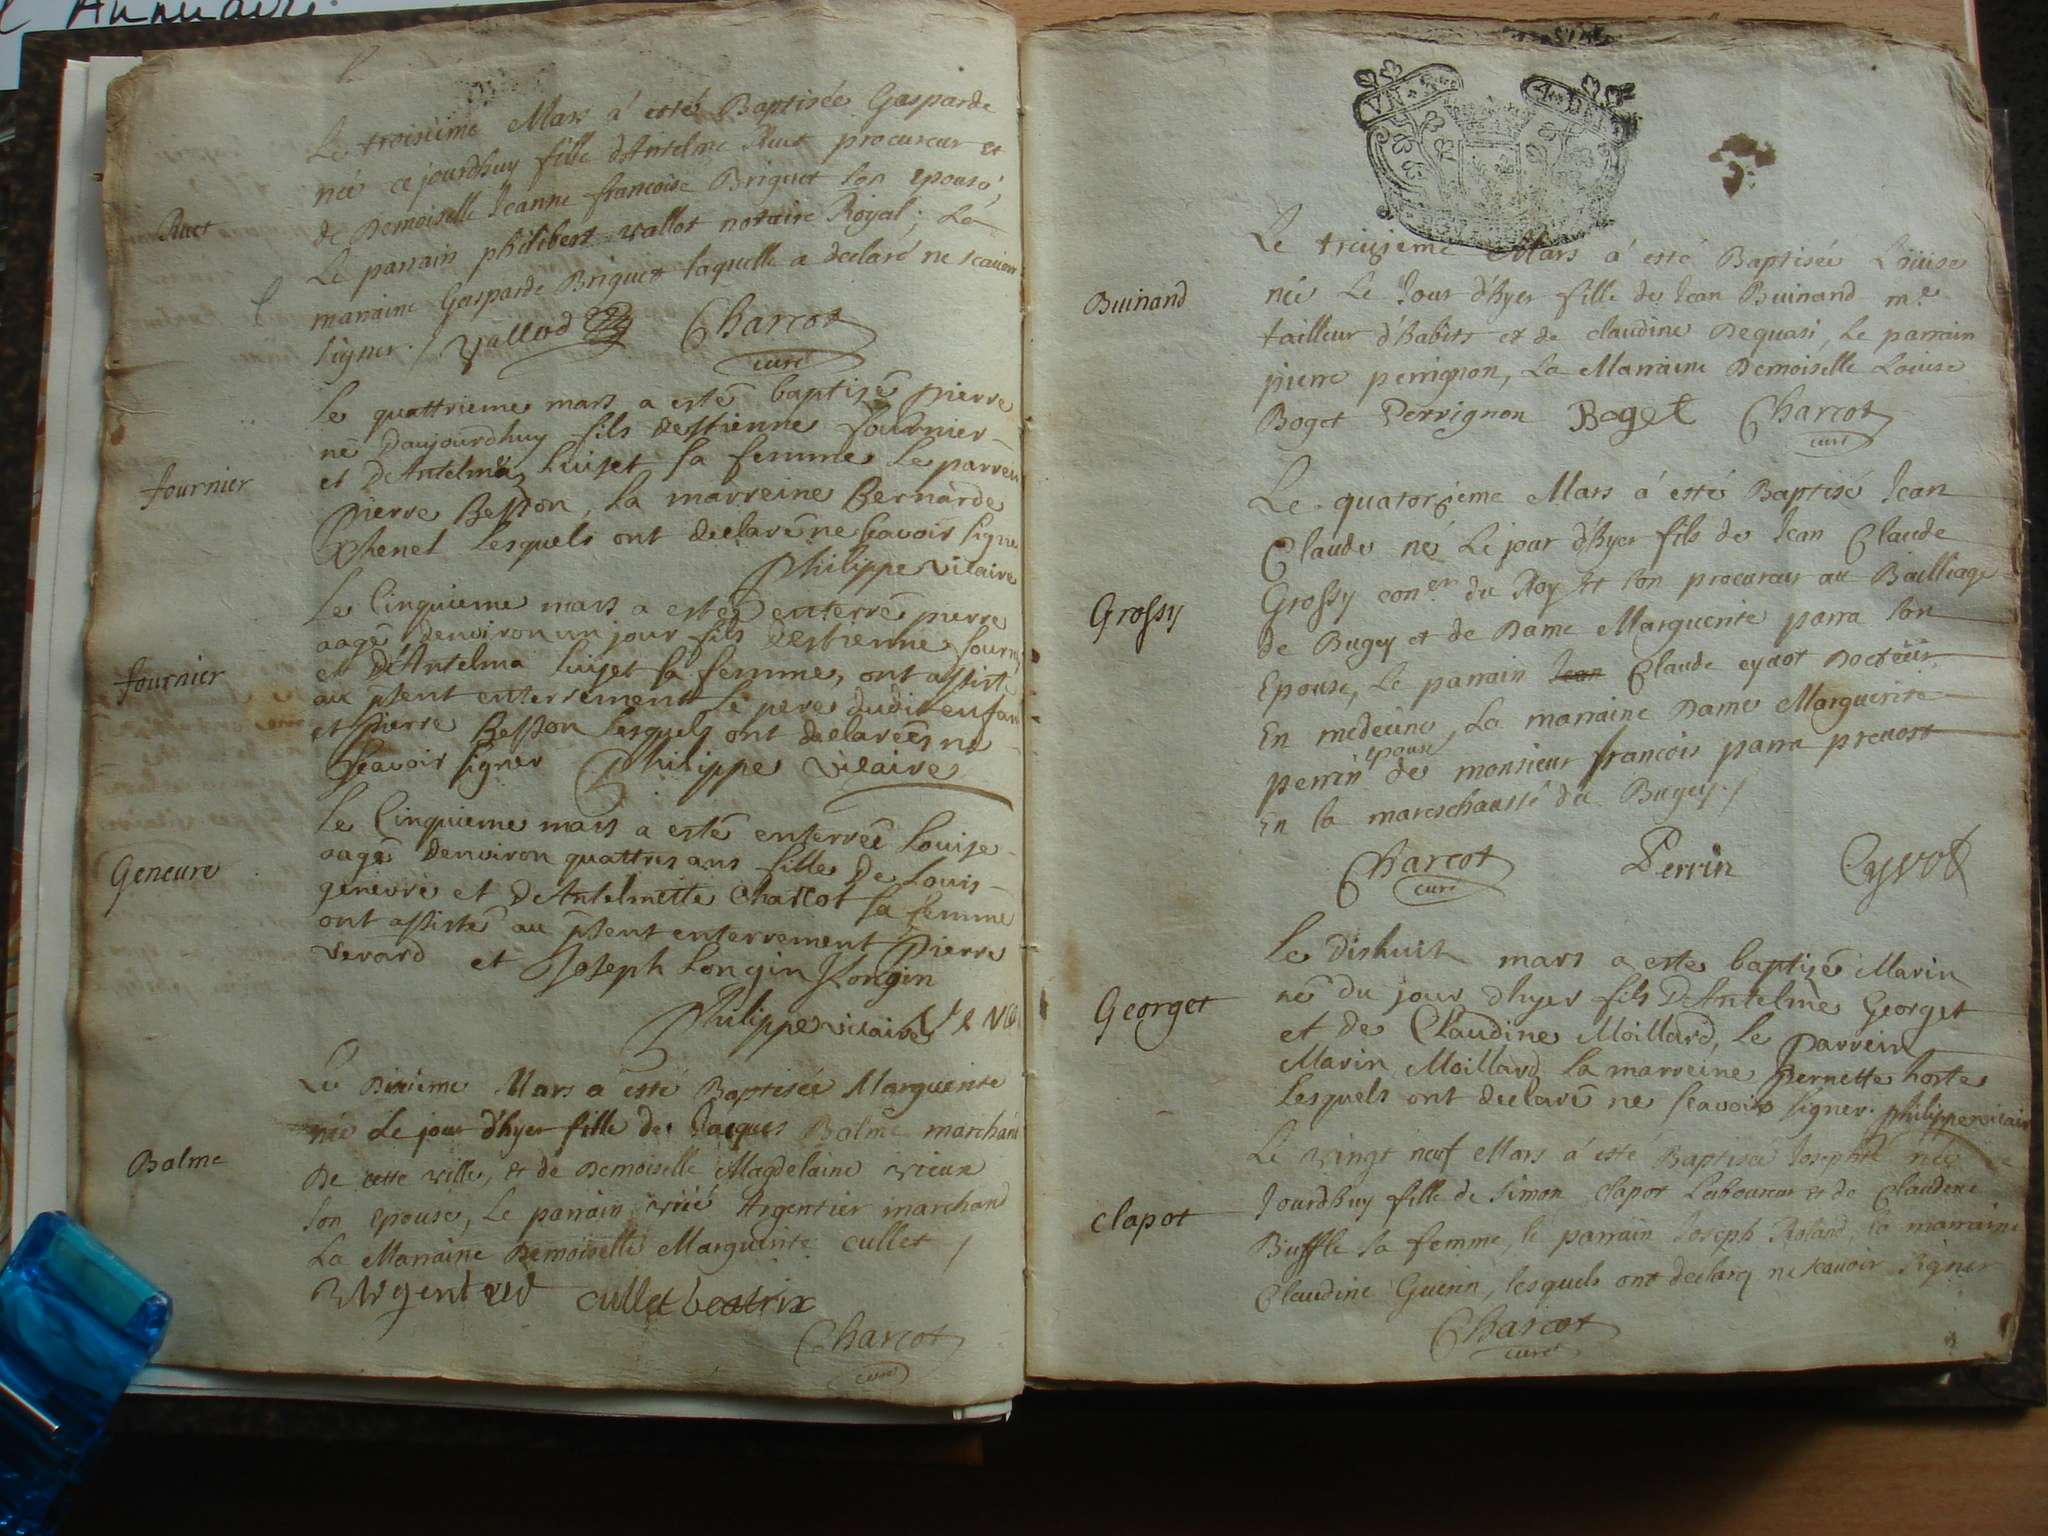 Annuaire
Le troisieme Mars á esté Baptisée Gasparde
née ce jourdhuy fille d'Antelme Ruet procureur et
de Demoiselle Jeanne francoise Briguet son epouse,
Ruet
Le parrain philibert vallot notaire Royal; La
marraine Gasparde Briguet laquelle a declaré ne scauoir
signer. / Vallod Charcot
curé
Le quattrieme mars a esté baptisé pierre
né Daujourdhuy fils destienne fournier
et DeAntelma Luiset sa femme Le parrein
fournier
pierre Besson, La marreine Bernarde
Lesquels ont declaré ne scavoir signer
Philippe vicaire
Le Cinquieme mars a esté enterré pierre
aagé denviron un jour fils destienne fourni
et DeAntelma Luiset sa femme, ont assisté
fournier
au pñent enterrement Le pere dudit enfan
et pierre Besson Lesquels ont declarés ne
scavoir signer Philippe vicaire
Le Cinquieme mars a esté enterreé Louise
aagé denviron quattres ans fille De Louis
Geneure
genievre et DeAntelmette Charcot sa femme
ont assisté au pñent enterrement pierre
verard et Joseph Longin JLongin
Philippe vicaire
Le Dixieme Mars á esté Baptisée Marguerite
née Le jour d'hyer fille de Jacques Balme marchand
Balme
De cette ville, et de Demoiselle Magdelaine vieux
son epouse, Le parrain Argentier marchand
La Marraine Demoiselle Marguerite cullet /
Argentier cullet beatrix
Charcot
curé
Le treizieme Mars á esté Baptisée Louise
Buinand
née Le Jour d'hyer fille de Jean Buinand m.e
tailleur d'habits et de claudine Dequasi, Le parrain
pierre perrignon, La Marraine Demoiselle Louise
Boget Perrignon Boget Charcot
curé
Le quatorzieme Mars á esté Baptisé Jean
Claude né Le jour d'hyer fils de Jean Claude
Grossy
Grossy con.er du Roy et son procureur au Bailliage
de Bugey et de Dame Marguerite parra son
Epouse, Le parrain Jean Claude eyvot Docteur
En medecine, La marraine Dame Marguerite
perrin epouse de monsieur francois parra preuost
En la mareschaussé du Bugey. /
Charcot Perrin Eyvot
curé
Le Dishuit mars a esté baptisé Marin
né du jour dhyer fils DeAntelme Georget
Georget
et de Claudine Moillard, Le parrein
Marin Moillard La marreine pernette horte
Lesquels ont declaré ne scavoir signer. philippe vicaire
Le vingt neuf Mars á esté Baptisée Josephte née
Jourdhuy fille de Simon Clapot Laboureur et de Claudine
Clapot
Buffle sa femme, le parrain Joseph Roland, la marraine
Claudine Guerin, lesquels ont declaré ne scauoir signer
Charcot
curé